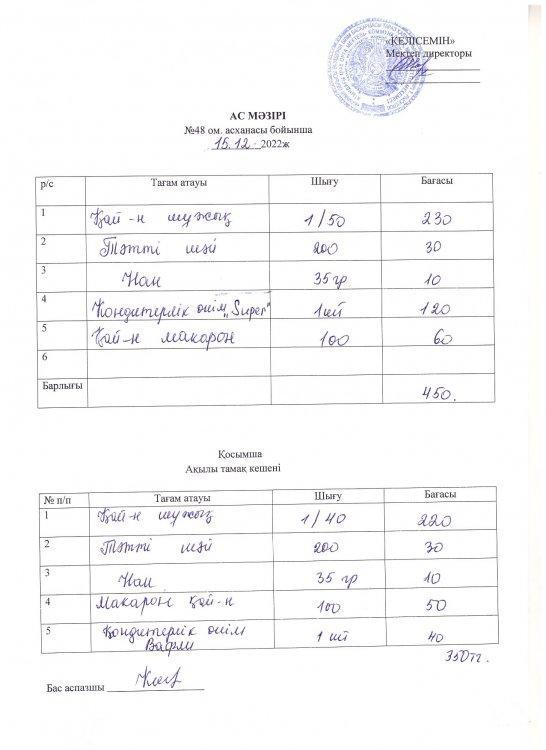 «КЕЛІСЕМІН»
Мектеп директоры
АС МӘЗІРІ
№48 ом. асханасы бойынша
15.12. 2022ж
р/с Тағам атауы Шығу Бағасы
1 Қай-н шұжық 1/50 230
2 Тәтті шәй 200 30
3 Нан 35 гр 10
4 Кондитерлік өнім „Super" 1 шт 120
5 Қай-н макарон 100 60
6
Барлығы 450.
Қосымша
Ақылы тамақ кешені
№ п/п Тағам атауы Шығу Бағасы
1 Қай-н шұжық 1/40 220
2 Тәтті шәй 200 30
3 Нан 35 гр 10
4 Макарон қай-н 100 50
5 Кондитерлік өнім 1 шт 40
Вафли
350тг.
Бас аспазшы